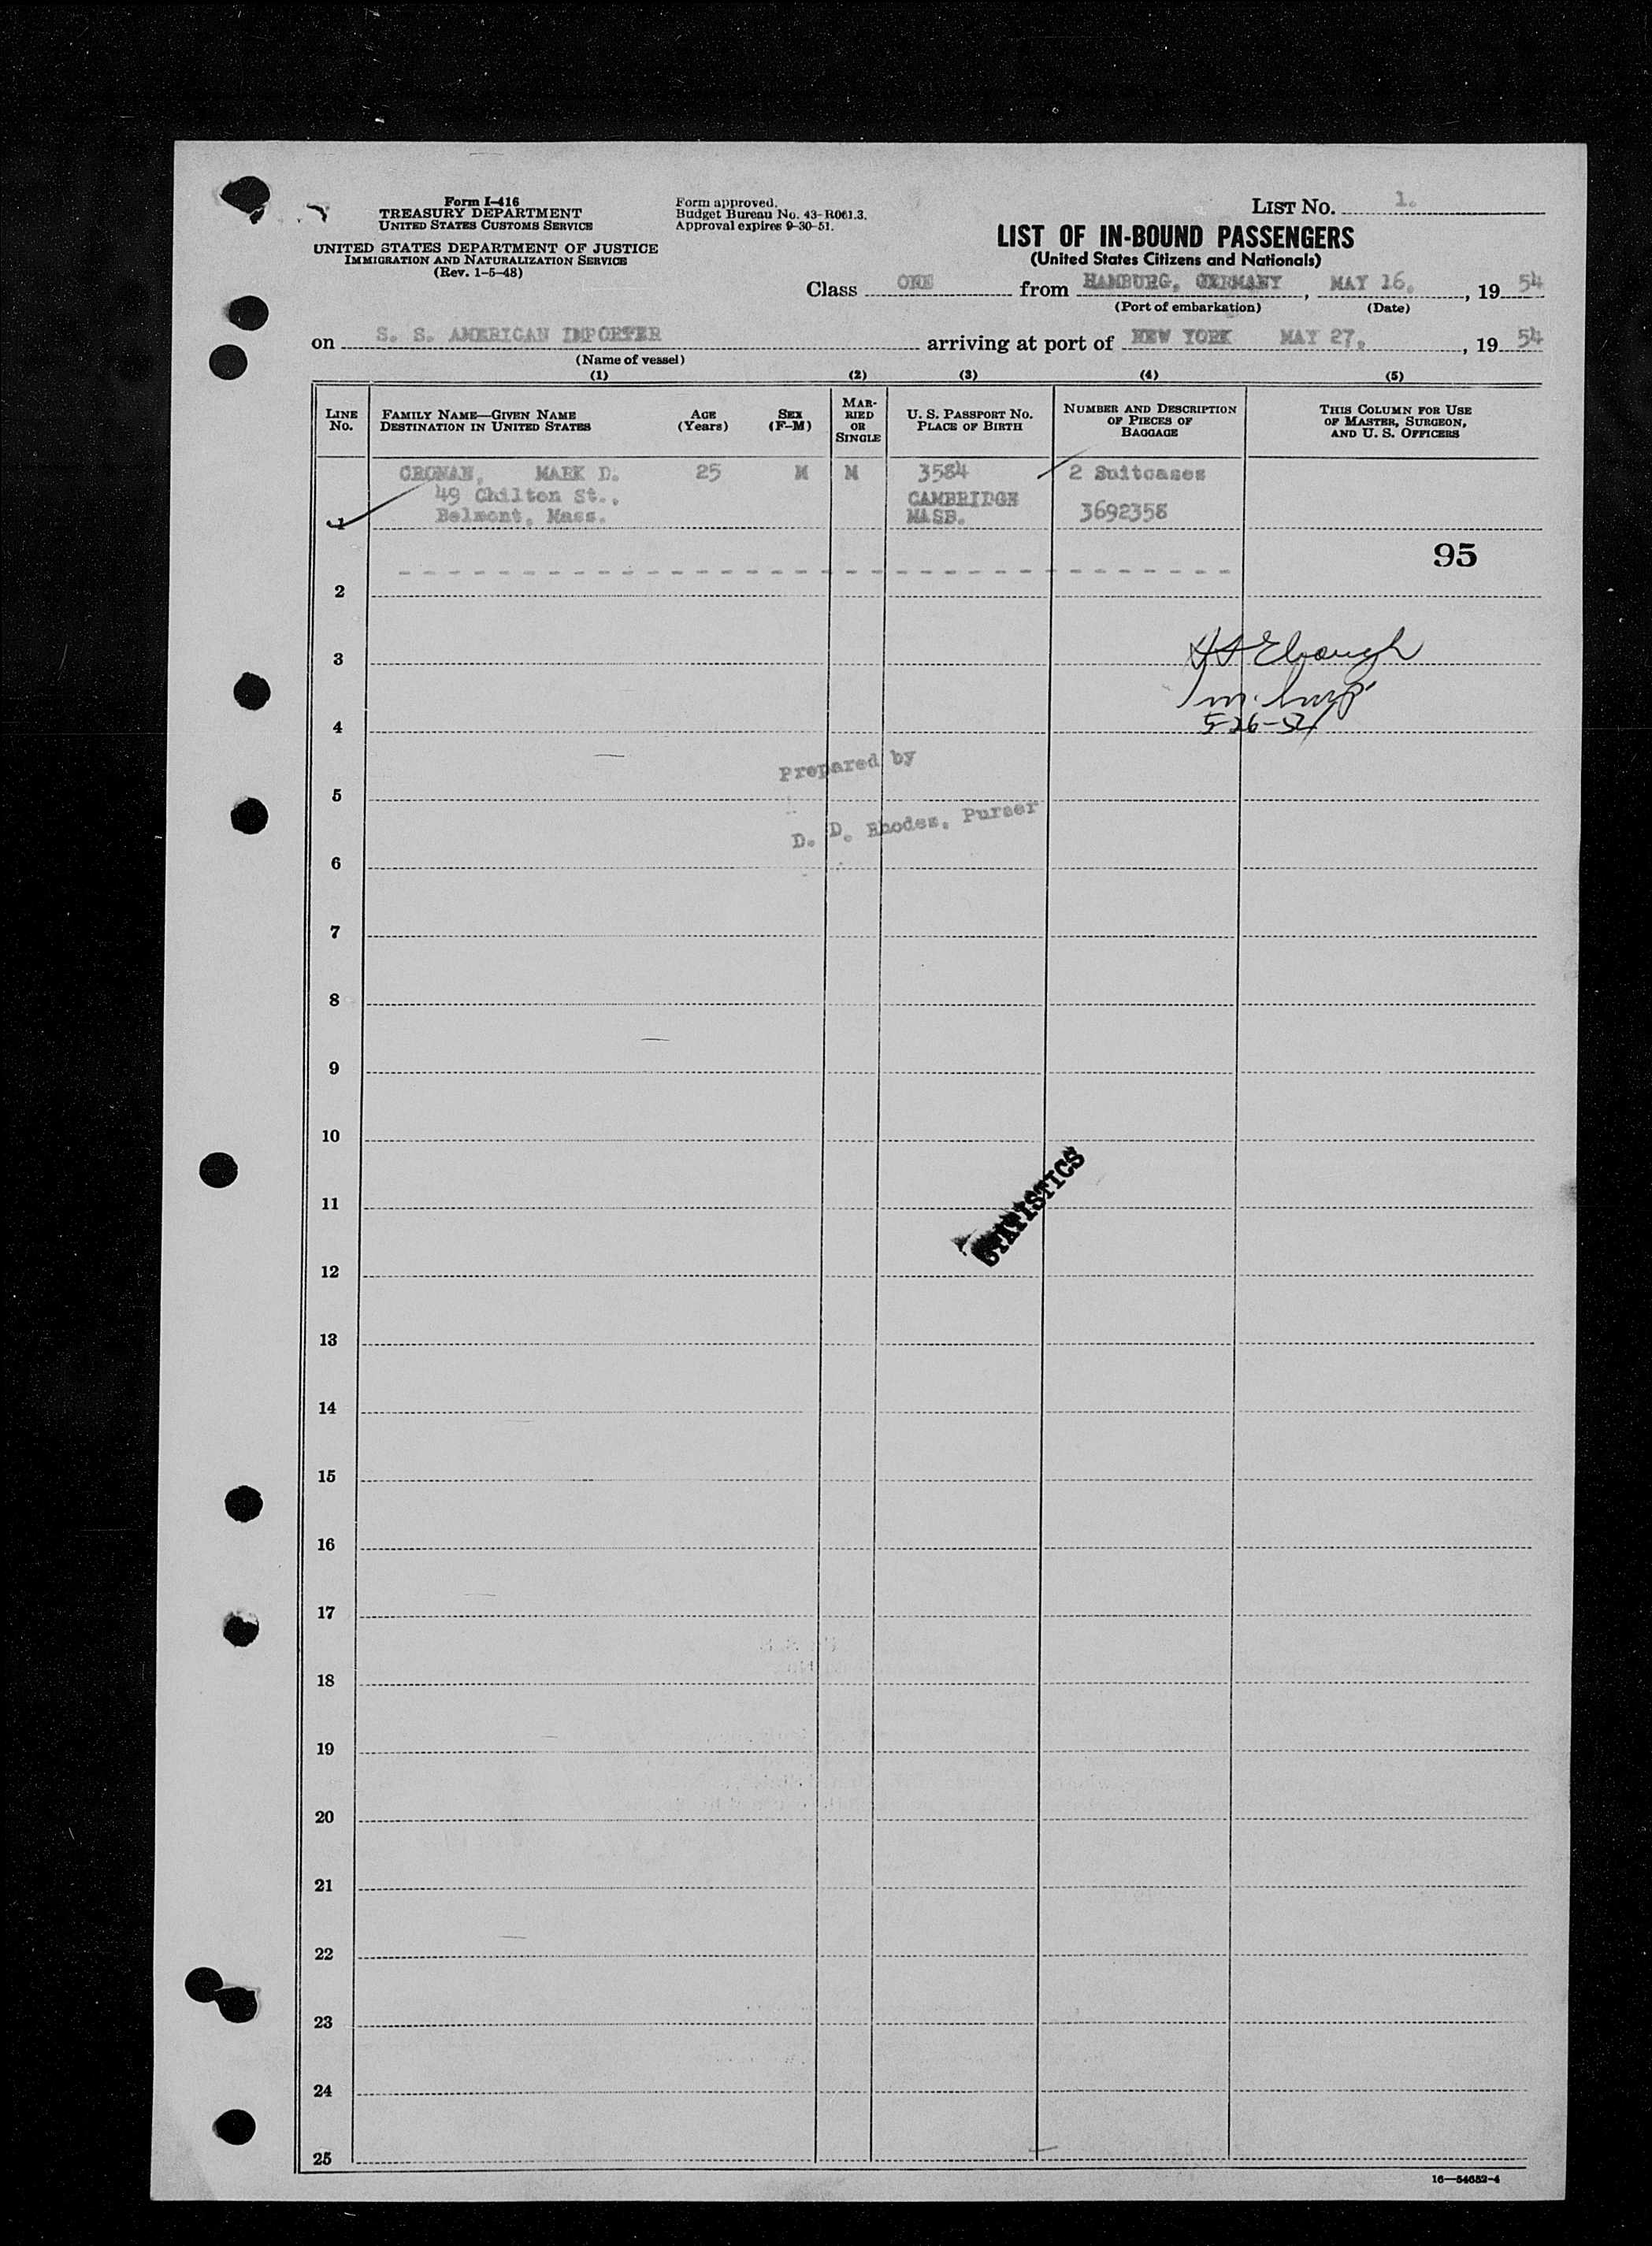 LIST NO. 1.
Form I-416
TREASURY DEPARTMENT
UNITED STATES CUSTOMS SERVICE
UNITED STATES DEPARTMENT OF JUSTICE
IMMIGRATION AND NATURALIZATION SERVICE
(Rev. 1-5-48)
Form approved.
Budget Bureau No. 43-R061.3.
Approval expires 9-30-51.
LIST OF IN-BOUND PASSENGERS
(United States Citizens and Nationals)
Class ONE from HAMBURG, GERMANY, MAY 16, , 19 54
(Port of embarkation) (Date)
on S. S. AMERICAN IMPORTER arriving at port of NEW YORK MAY 27, , 19 54
(Name of vessel)
(1) (2) (3) (4) (5)
LINE No.
FAMILY NAME—GIVEN NAME
DESTINATION IN UNITED STATES
AGE (Years)
SEX (F-M)
MARRIED OR SINGLE
U. S. PASSPORT NO.
PLACE OF BIRTH
NUMBER AND DESCRIPTION
OF PIECES OF
BAGGAGE
THIS COLUMN FOR USE
OF MASTER, SURGEON,
AND U. S. OFFICERS
CRONAN, MARK D. 25 M M 3584 2 Suitcases
49 Chilton St., CAMBRIDGE
1 Belmont, Mass. MASS. 3692358
95
2
3
Ebaugh
4
5-26-54
Prepared by
5
D. D. Rhodes, Purser
6
7
8
9
10
11
STATISTICS
12
13
14
15
16
17
18
19
20
21
22
23
24
25
16—54682-4